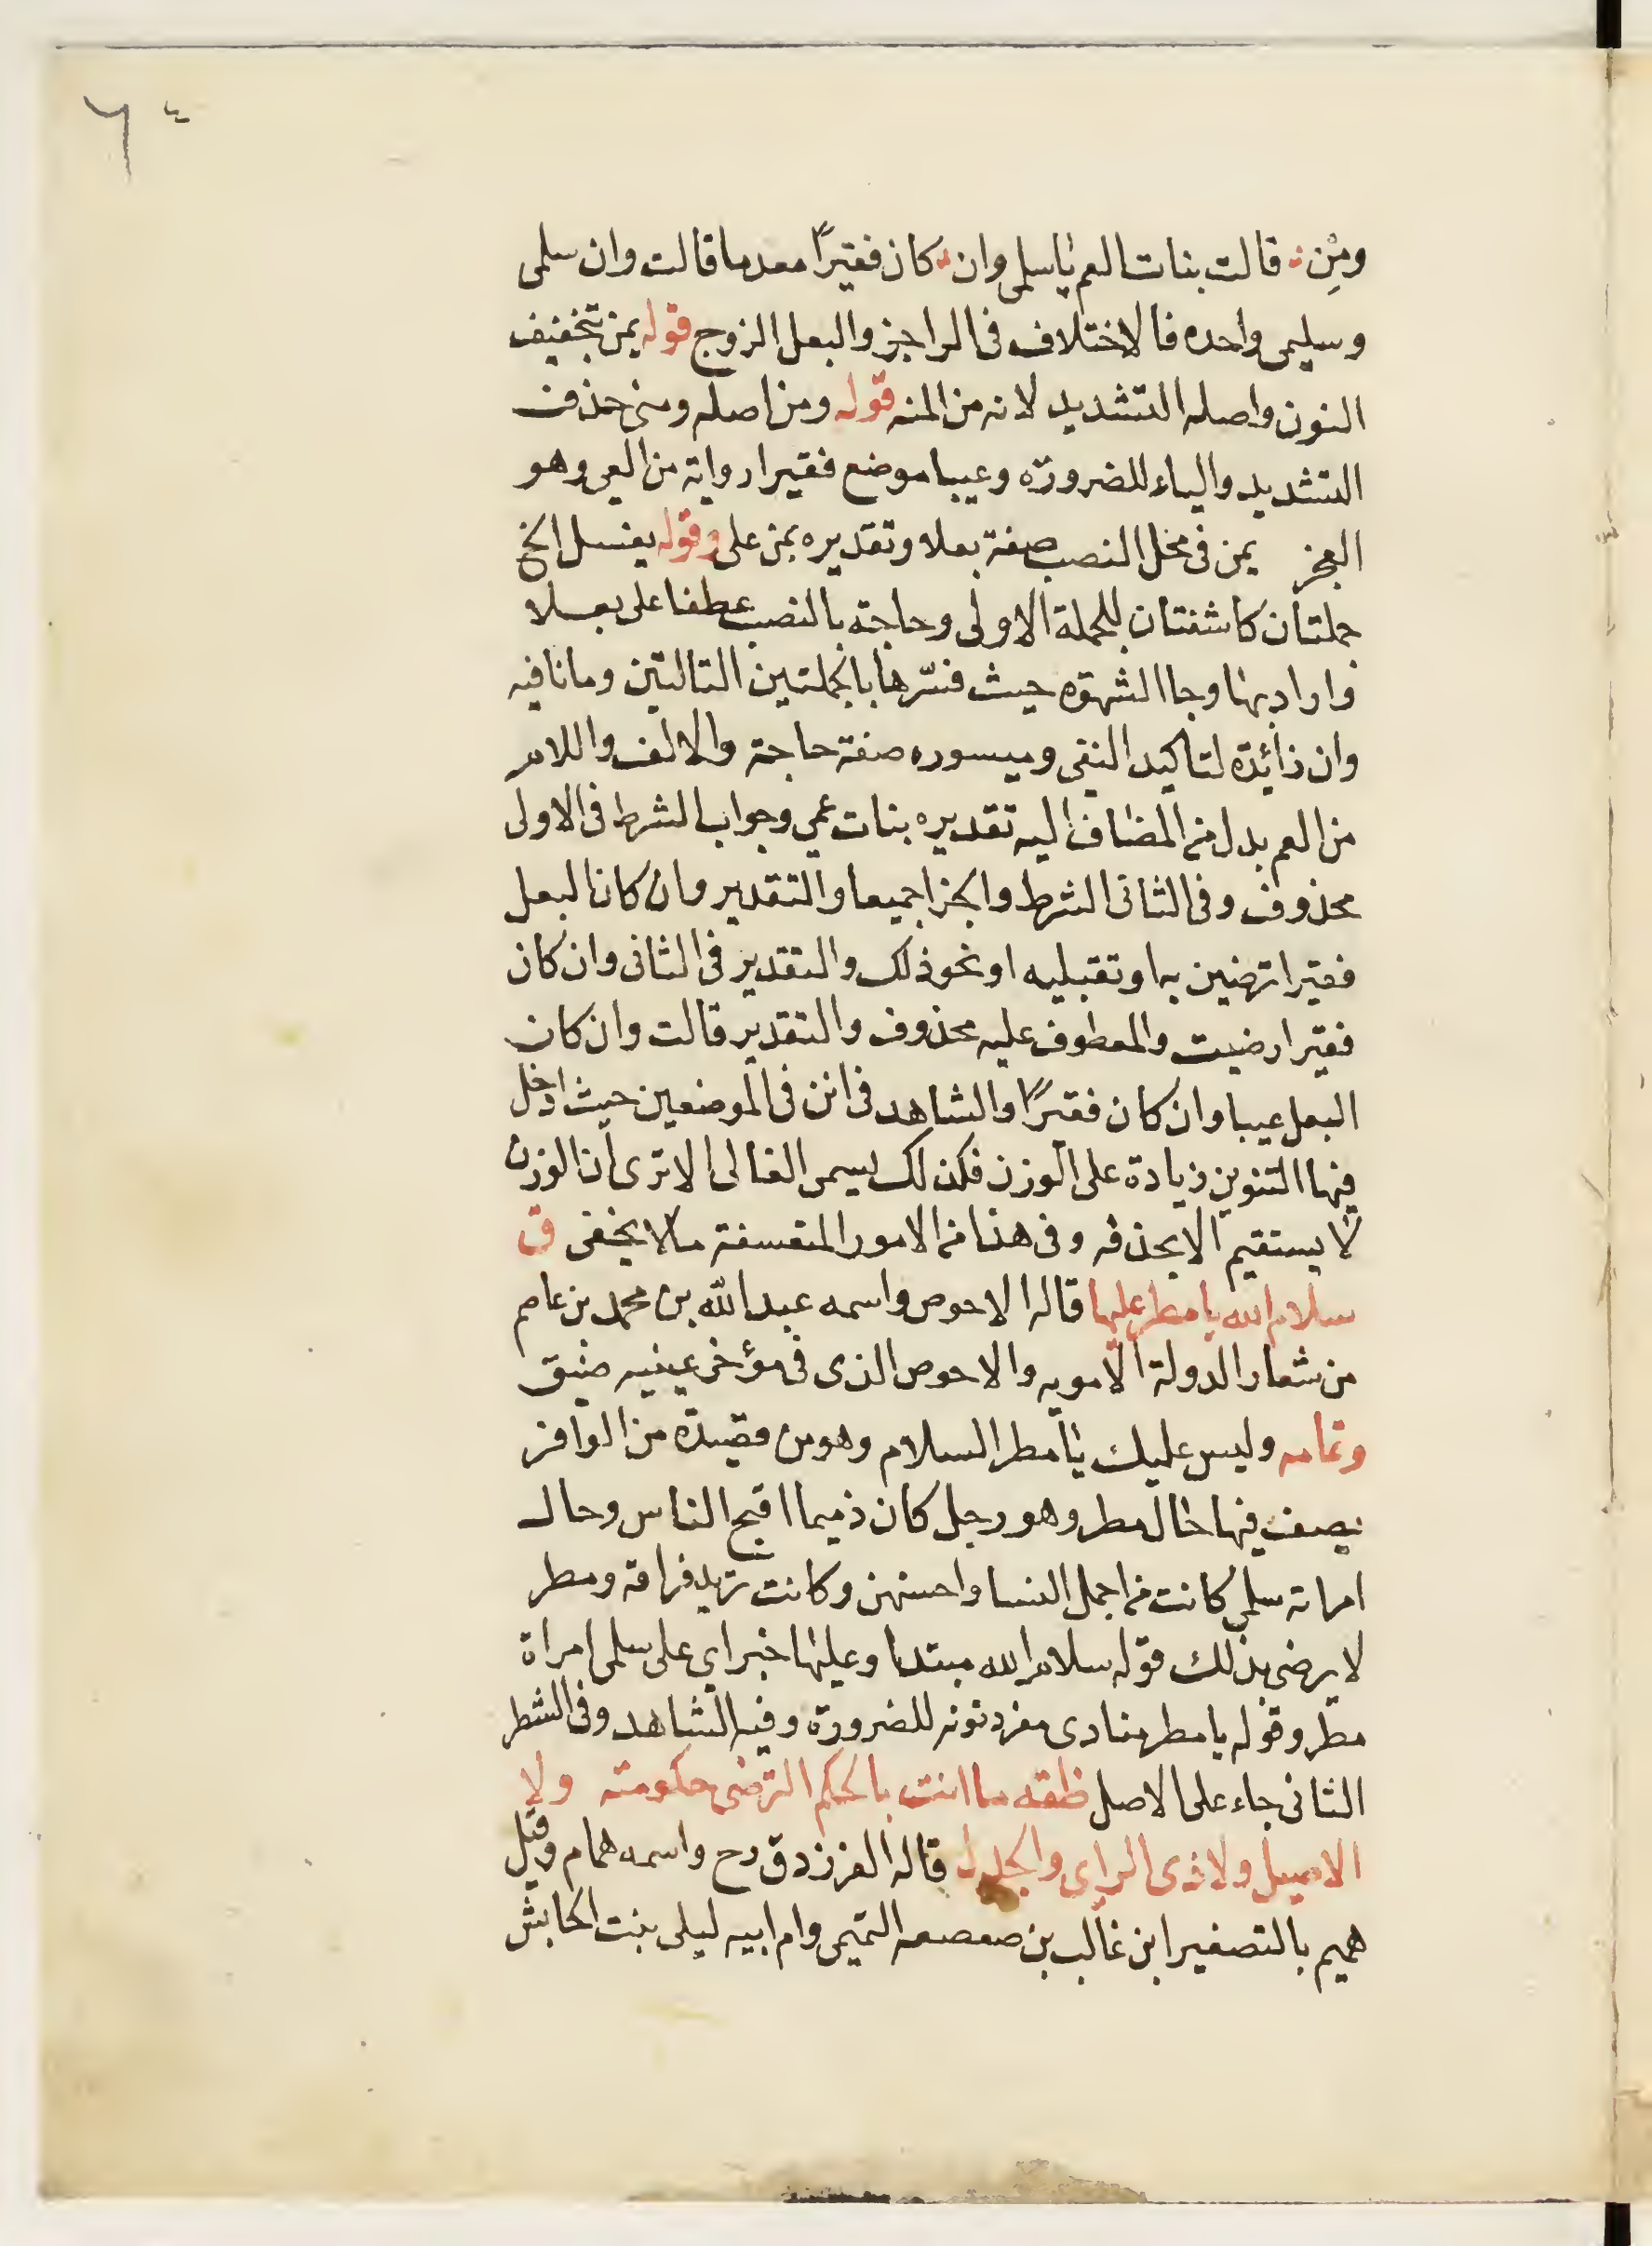 ٦
ومِنِن قالت بنات العم يا سلمى وان كان فقيرًا معدما قالت وان سلمى
وسليمى واحده فالاختلاف فى الراجز والبعل الزوج قوله يمن بتخفيف
النون واصله التشديد لانه من المنه قوله ومن اصله ومنى حذفت
التشديد والياء للضرورة وعييا موضع فقيرا رواية من العى وهو
العجز يمن فى محل النصب صفة بعلا وتقديره يمن على وقوله يغسل الخ
جملتان كاشفتان للجملة الاولى وحاجة بالنصب عطفا على بعلا
واراد بها وجا الشهوة حيث فسّرها بالجملتين التالتين وما نافيه
وان زائدة لتاكيد النفى وميسوره صفة حاجة والالف واللام
من العم بدل من المضاف اليه تقديره بنات عمي وجواب الشرط فى الاولى
محذوف وفى الثانى الشرط والجزا جميعا والتقدير وان كان البعل
فقيرا ترضين به وتقبليه او نحو ذلك والتقدير فى الثانى وان كان
فقيرا رضيت والمعطوف عليه محذوف والتقدير قالت وان كان
البعل عييا وان كان فقيرًا والشاهد فى انن فى الموضعين حيث ادخل
فيها التنوين زيادة على الوزن فكذلك يسمى الغالى الا ترى ان الوزن
لا يستقيم الا بحذفه وفى هذا من الامور المتعسفة مالا يخفى ق
سلام الله يا مطر عليها قاله الاحوص واسمه عبد الله بن محمد بن عاصم
من شعار الدولة الامويه والاحوص الذى فى مؤخر عينيه ضيق
وتمامه وليس عليك يا مطر السلام وهو من قصيدة من الوافر
يصف فيها حال مطر وهو رجل كان ذميما اقبح الناس وحال
امراته سلمى كانت من اجمل النسا واحسنهن وكانت تريد فراقه ومطر
لا يرضى بذلك قوله سلام الله مبتدا وعليها خبر اي على سلمى امراة
مطر وقوله يا مطر منادى مفرد نونه للضرورة وفيه الشاهد وفى الشطر
الثانى جاء على الاصل ظقه ما انت بالحكم الترضى حكومته ولا
الاصيل ولا ذى الراى والجدل قاله الفرزدق رح واسمه همام وقيل
هميم بالتصغير ابن غالب بن صعصعه التميمى وام ابيه ليلى بنت الحابش